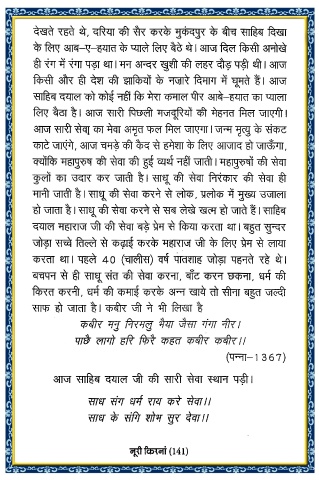 देखते रहते थे, दरिया की सैर करके मुकंदपुर के बीच साहिब दिखा
के लिए आब–ए–हयात के प्याले लिए बैठे थे। आज दिल किसी अनोखे
ही रंग में रंगा पड़ा था। मन अन्दर खुशी की लहर दौड़ पड़ी थी। आज
किसी और ही देश की झाकियों के नज़ारे दिमाग में घूमते हैं। आज
साहिब दयाल को कोई नहीं कि मेरा कमाल पीर आबे–हयात का प्याला
लिए बैठा है। आज सारी पिछली मजदूरियों की मेहनत मिल जाएगी।
आज सारी सेवा का मेवा अमृत फल मिल जाएगा। जन्म मृत्यु के संकट
काटे जाएंगे, आज चमड़े की कैद से हमेशा के लिए आजाद हो जाऊँगा,
क्योंकि महापुरुष की सेवा की हुई व्यर्थ नहीं जाती। महापुरुषों की सेवा
कुलों का उदार कर जाती है। साधू की सेवा निरंकार की सेवा ही
मानी जाती है। साधू की सेवा करने से लोक, प्रलोक में मुख्य उजाला
हो जाता है। साधू की सेवा करने से सब लेखे खत्म हो जाते हैं। साहिब
दयाल महाराज जी की सेवा बड़े प्रेम से किया करता था। बहुत सुन्दर
जोड़ा सच्चे तिल्ले से कढ़ाई करके महाराज जी के लिए प्रेम से लाया
करता था। पहले 40 (चालीस) वर्ष पातशाह जोड़ा पहनते रहे थे।
बचपन से ही साधू संत की सेवा करना, बाँट करन छकना, धर्म की
किरत करनी, धर्म की कमाई करके अन्न खाये तो सीना बहुत जल्दी
साफ हो जाता है। कबीर जी ने भी लिखा है
कबीर मनु निरमलु भैया जैसा गंगा नीर।
पाछै लागो हरि फिरै कहत कबीर कबीर।।
(पन्ना–1367)
आज साहिब दयाल जी की सारी सेवा स्थान पड़ी।
साध संग धर्म राय करे सेवा।।
साध के संगि शोभ सुर देवा।।
नूरी किरनां (141)